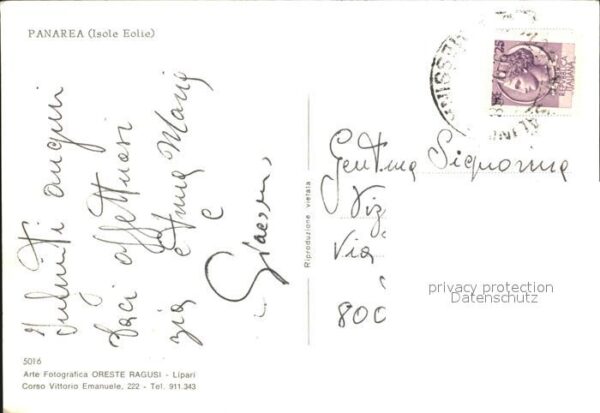 PANAREA (Isole Eolie)
Infiniti auguri
baci affettuosi
zia Anna Maria
e
25
REPUBBLICA
ITALIANA
Gent.ma Signorina
Via
800
Riproduzione vietata
privacy protection
Datenschutz
5016
Arte Fotografica ORESTE RAGUSI - Lipari
Corso Vittorio Emanuele, 222 - Tel. 911.343